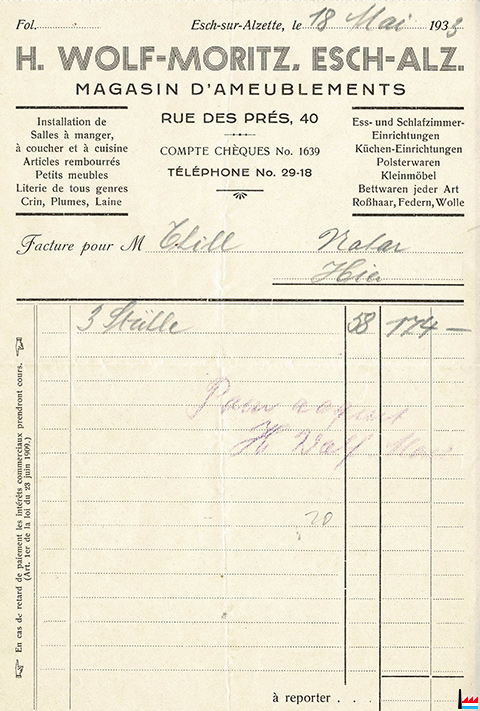 Fol. Esch-sur-Alzette, le 18 Mai 1933
H. WOLF-MORITZ, ESCH-ALZ.
MAGASIN D'AMEUBLEMENTS
Installation de
Salles à manger,
à coucher et à cuisine
Articles rembourrés
Petits meubles
Literie de tous genres
Crin, Plumes, Laine
RUE DES PRÉS, 40
COMPTE CHÈQUES No. 1639
TÉLÉPHONE No. 29-18
Ess- und Schlafzimmer-
Einrichtungen
Küchen-Einrichtungen
Polsterwaren
Kleinmöbel
Bettwaren jeder Art
Roßhaar, Federn, Wolle
Facture pour M Notar
Hier
3 Stülle 58 174 —
Pour acquit
H Wolf Mor
20
En cas de retard de paiement les intérêts commerciaux prendront cours.
(Art. 1er de la loi du 28 juin 1909.)
à reporter . . .